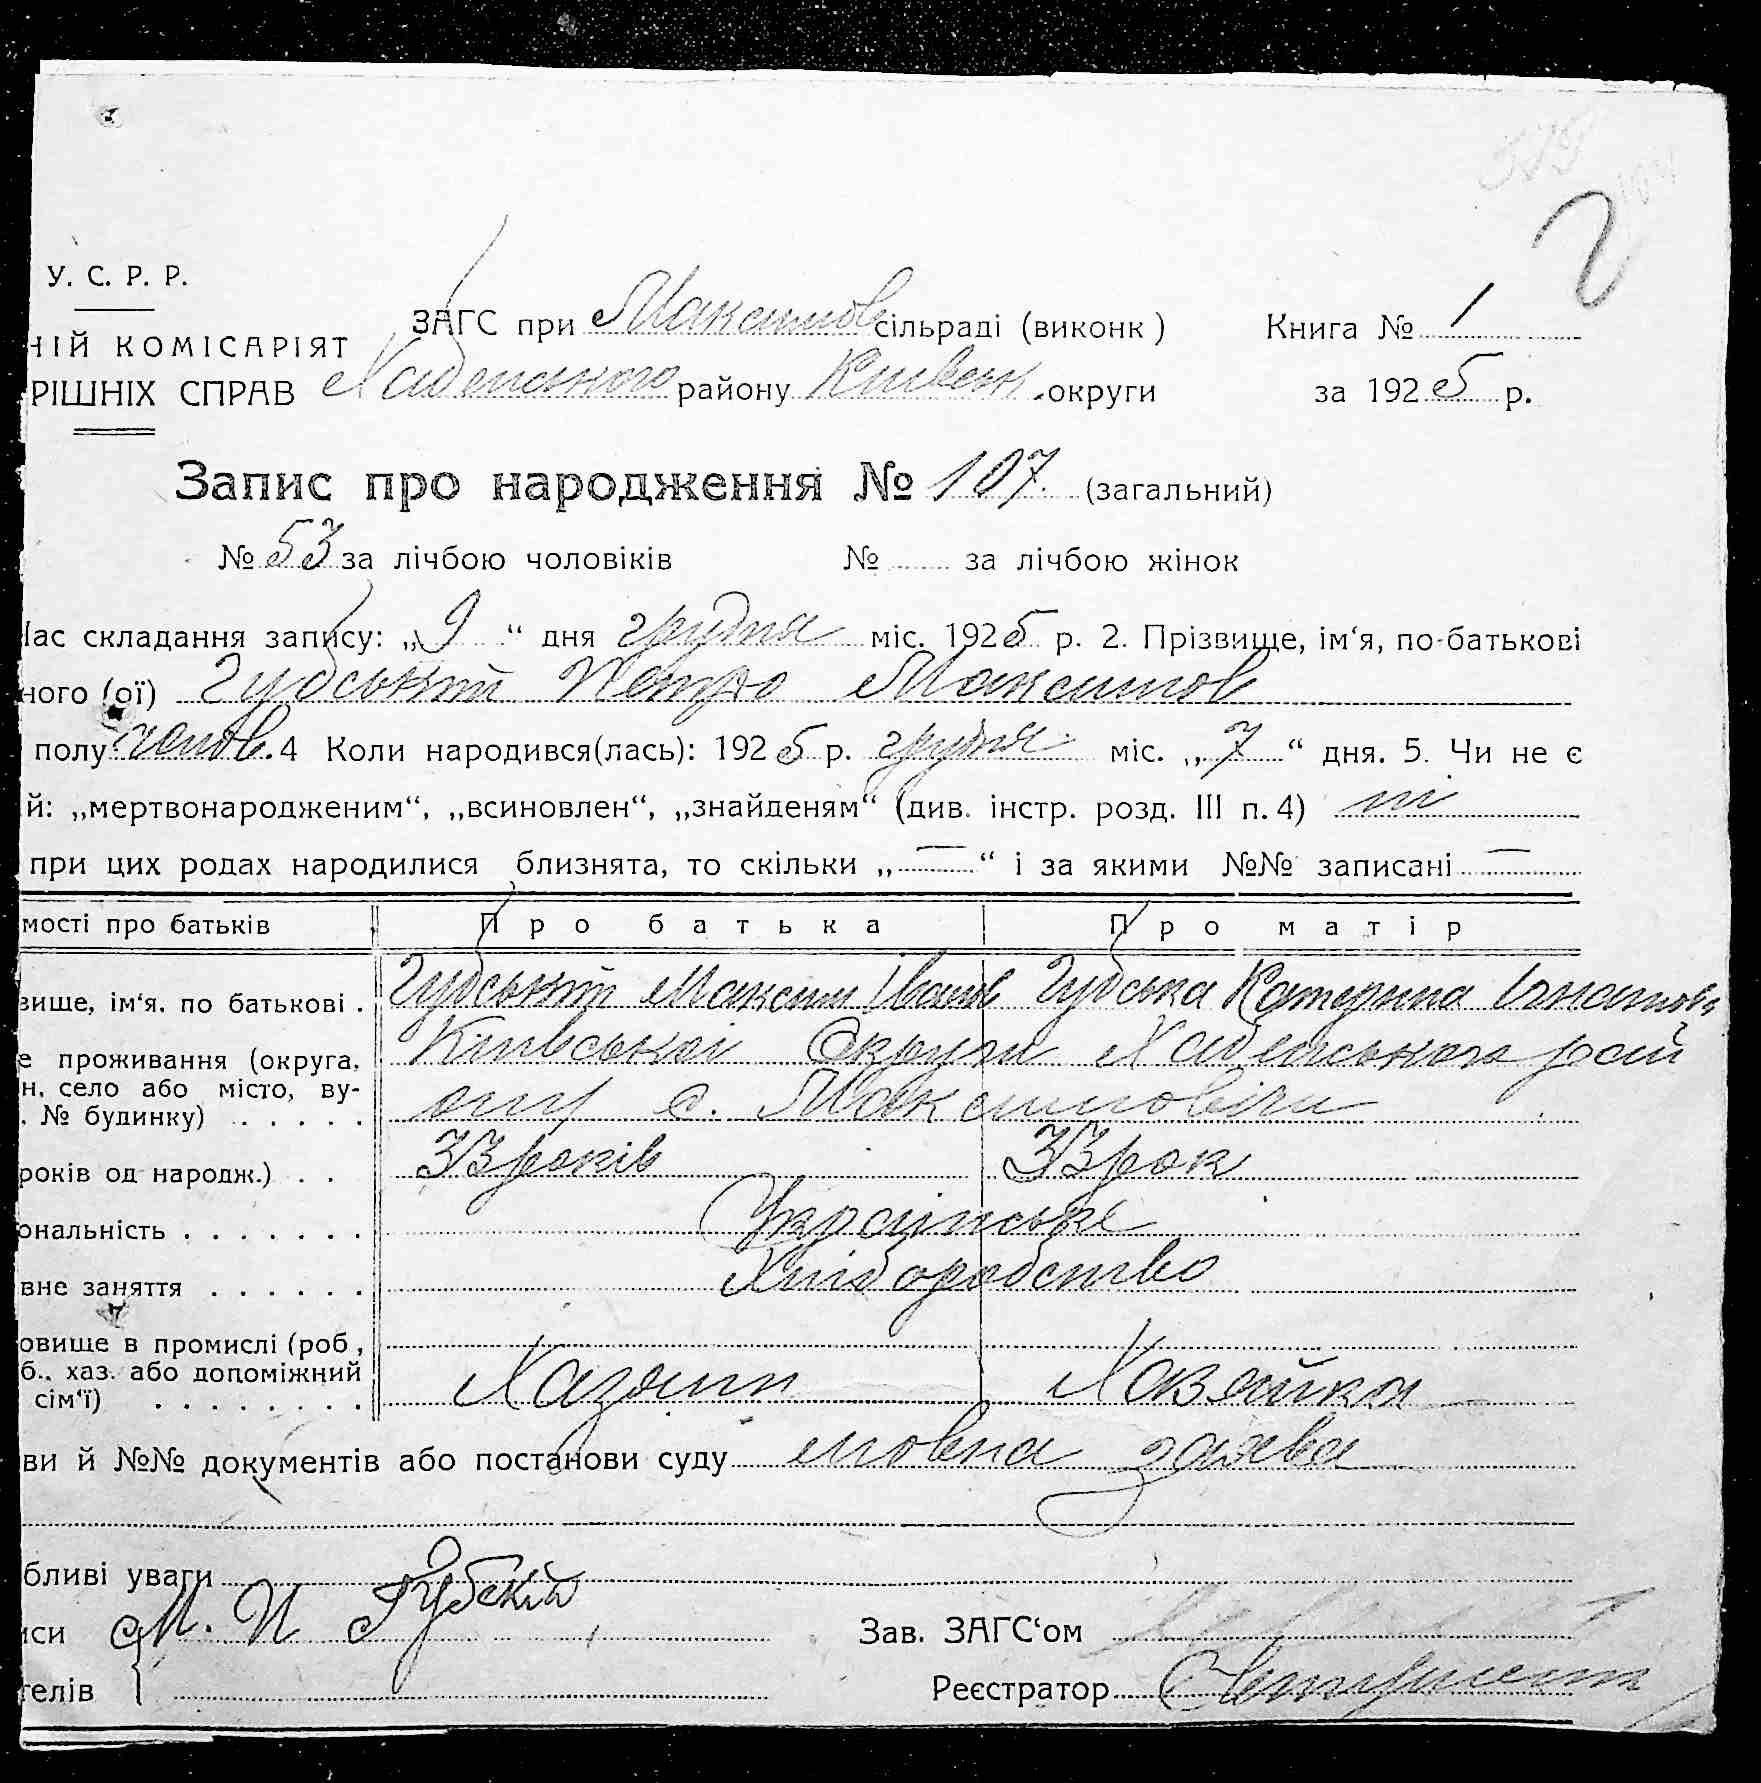 2
У. С. Р. Р.
ЗАГС при Максимов сільраді (виконк) Книга № 1
НІЙ КОМІСАРІЯТ
РІШНІХ СПРАВ Хабенського району Київськ. округи за 1925 р.
Запис про народження № 107. (загальний)
№ 53 за лічбою чоловіків № за лічбою жінок
Час складання запису: „9“ дня грудня міс. 1925 р. 2. Прізвище, ім‘я, по-батькові
ного (ої) Губський Петро Максимов
полу чолов. 4 Коли народився(лась): 1925 р. грудня міс. „7“ дня. 5. Чи не є
й: „мертвонародженим“, „всиновлен“, „знайденям“ (див. інстр. розд. III п. 4) ні
при цих родах народилися близнята, то скільки „—“ і за якими №№ записані —
мості про батьків Про батька Про матір
вище, ім‘я. по батькові . Губський Максим Іванов Губська Катерина Ігнатова
е проживання (округа, Київської Округи Хабенського рай
н, село або місто, ву- ону с. Максимовичи
. № будинку) . . . . .
років од народж.) . . 33 років 33 рок
ональність . . . . . . . Українські
вне заняття . . . . . . Хліборобство
овище в промислі (роб,
б., хаз. або допоміжний Хазяин Хазяйка
сім‘ї) . . . . . . . .
ви й №№ документів або постанови суду мовна заява
бливі уваги
иси М. И Губскій Зав. ЗАГС‘ом
телів Реєстратор